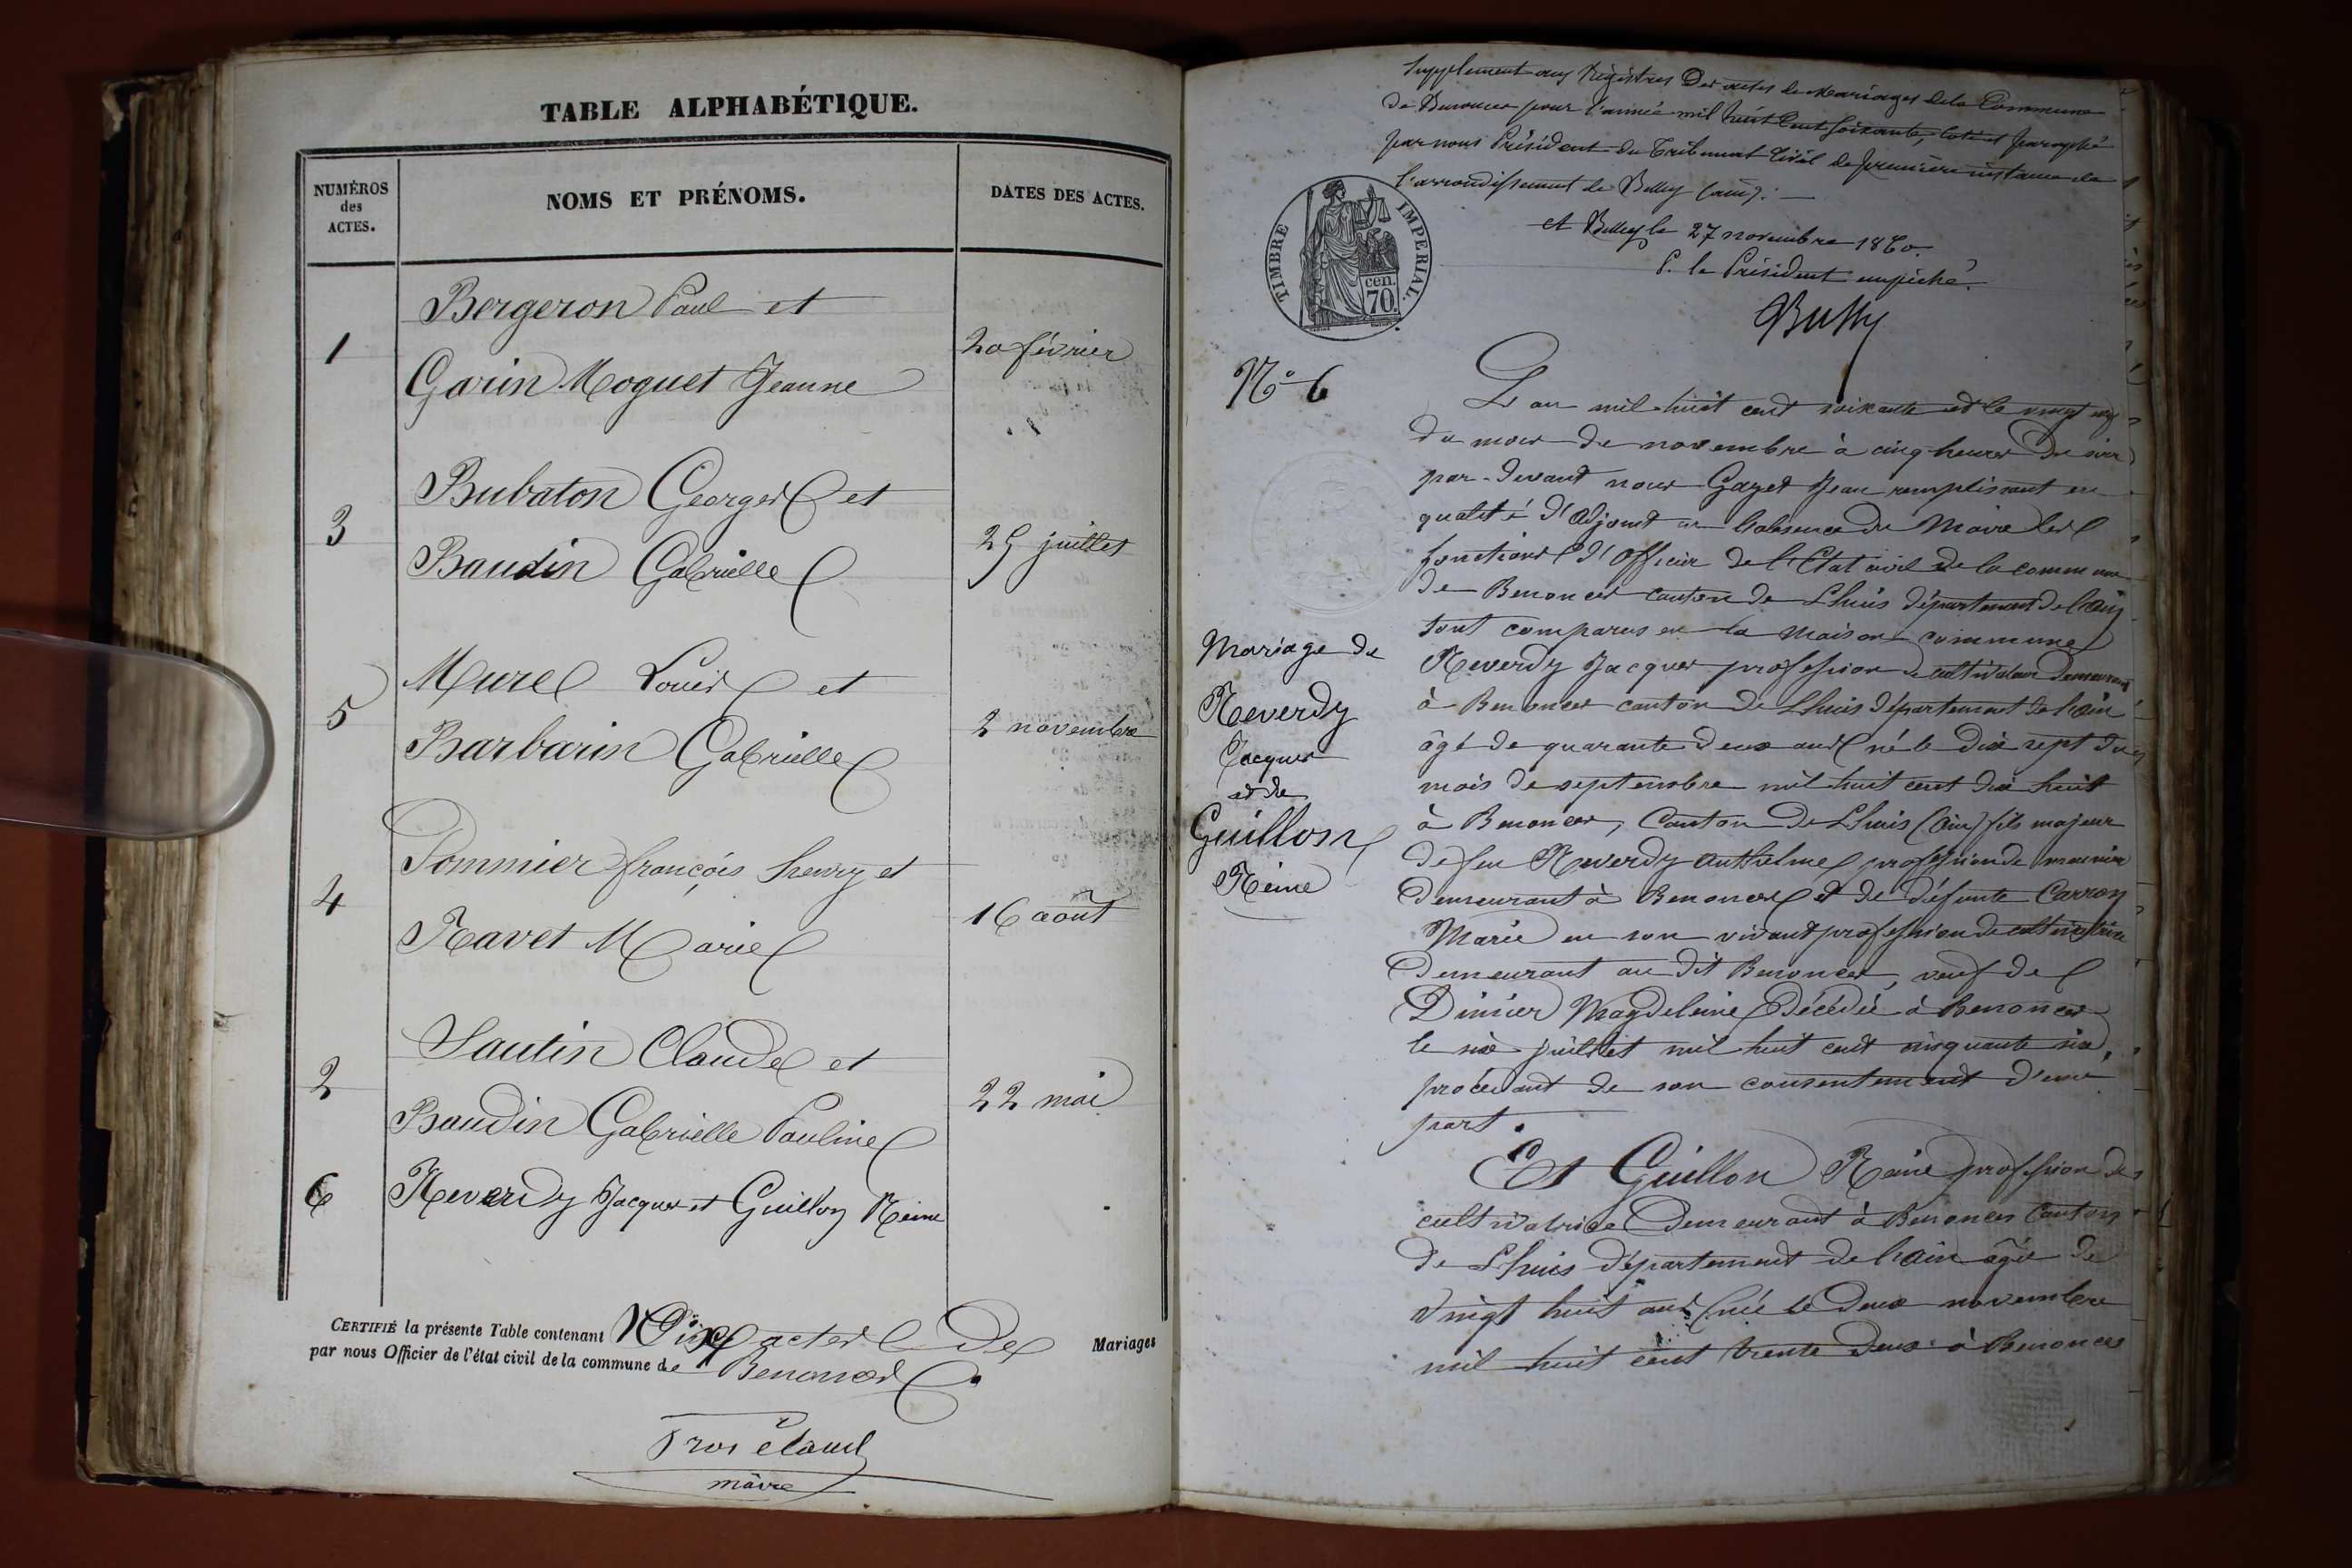 TABLE ALPHABÉTIQUE.
NUMÉROS
des
ACTES.
NOMS ET PRÉNOMS.
DATES DES ACTES.
Bergeron Paul et
1
20 février
Garin Moquet Jeanne
Bubaton George et
3
25 juillet
Baudin Gabrielle
Murel Louis et
5
2 novembre
Barbarin Gabrielle
Pommier françois henry et
4
16 août
Ravet Marie
Sautin Claude et
2
22 mai
Baudin Gabrielle Pauline
6
Reverdy Jacques et Guillon Reine
CERTIFIÉ la présente Table contenant actes de Mariages
par nous Officier de l'état civil de la commune de Benonces
maire
Supplement aux Régistres Des actes de Mariages de la Commune
de Benonces pour l'année mil huit Cent soixante, coté et paraphé
par nous Président du Tribunal Civil de première instance de
l'arrondissement de Belley (ain).
A Belley le 27 novembre 1860.
P. le Président empéché.
TIMBRE IMPERIAL.
70 cen.
No 6
L'an mil huit cent soixante et le vingt
du mois de novembre à cinq heures du soir
par-devant nous Gayet Jean remplissant en
qualité d'Adjoint en l'absence du Maire les
fonctions d'Officier de l'Etat civil de la commune
de Benonces canton de Lhuis département de l'ain
sont comparus en la Maison commune
Mariage de
Reverdy
Jacques
et de
Guillon
Reine
Reverdy Jacques profession de cultivateur demeurant
à Benonces canton de Lhuis département de l'ain
âgé de quarante deux ans né le dix sept du
mois de septembre mil huit cent dix huit
à Benonces, Canton de Lhuis (Ain) fils majeur
de feu Reverdy Anthelme profession de meunier
demeurant à Benonces et de défunte Carron
Marie en son vivant profession de cultivatrice
Demeurant au dit Benonces, veuf de
Dimier Magdeleine décédée à Benonces
le six juillet mil huit cent cinquante six,
procédant de son consentement d'une
part.
Et Guillon Reine profession de
cultivatrice Demeurant à Benonces Canton
de Lhuis département de l'ain âgée de
vingt huit ans née le deux novembre
mil huit cent trente deux à Benonces